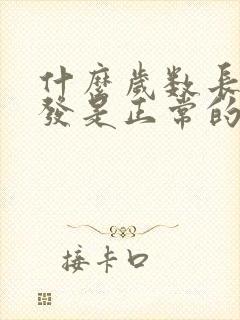 什麼歲数長
發是正常的
接卡口